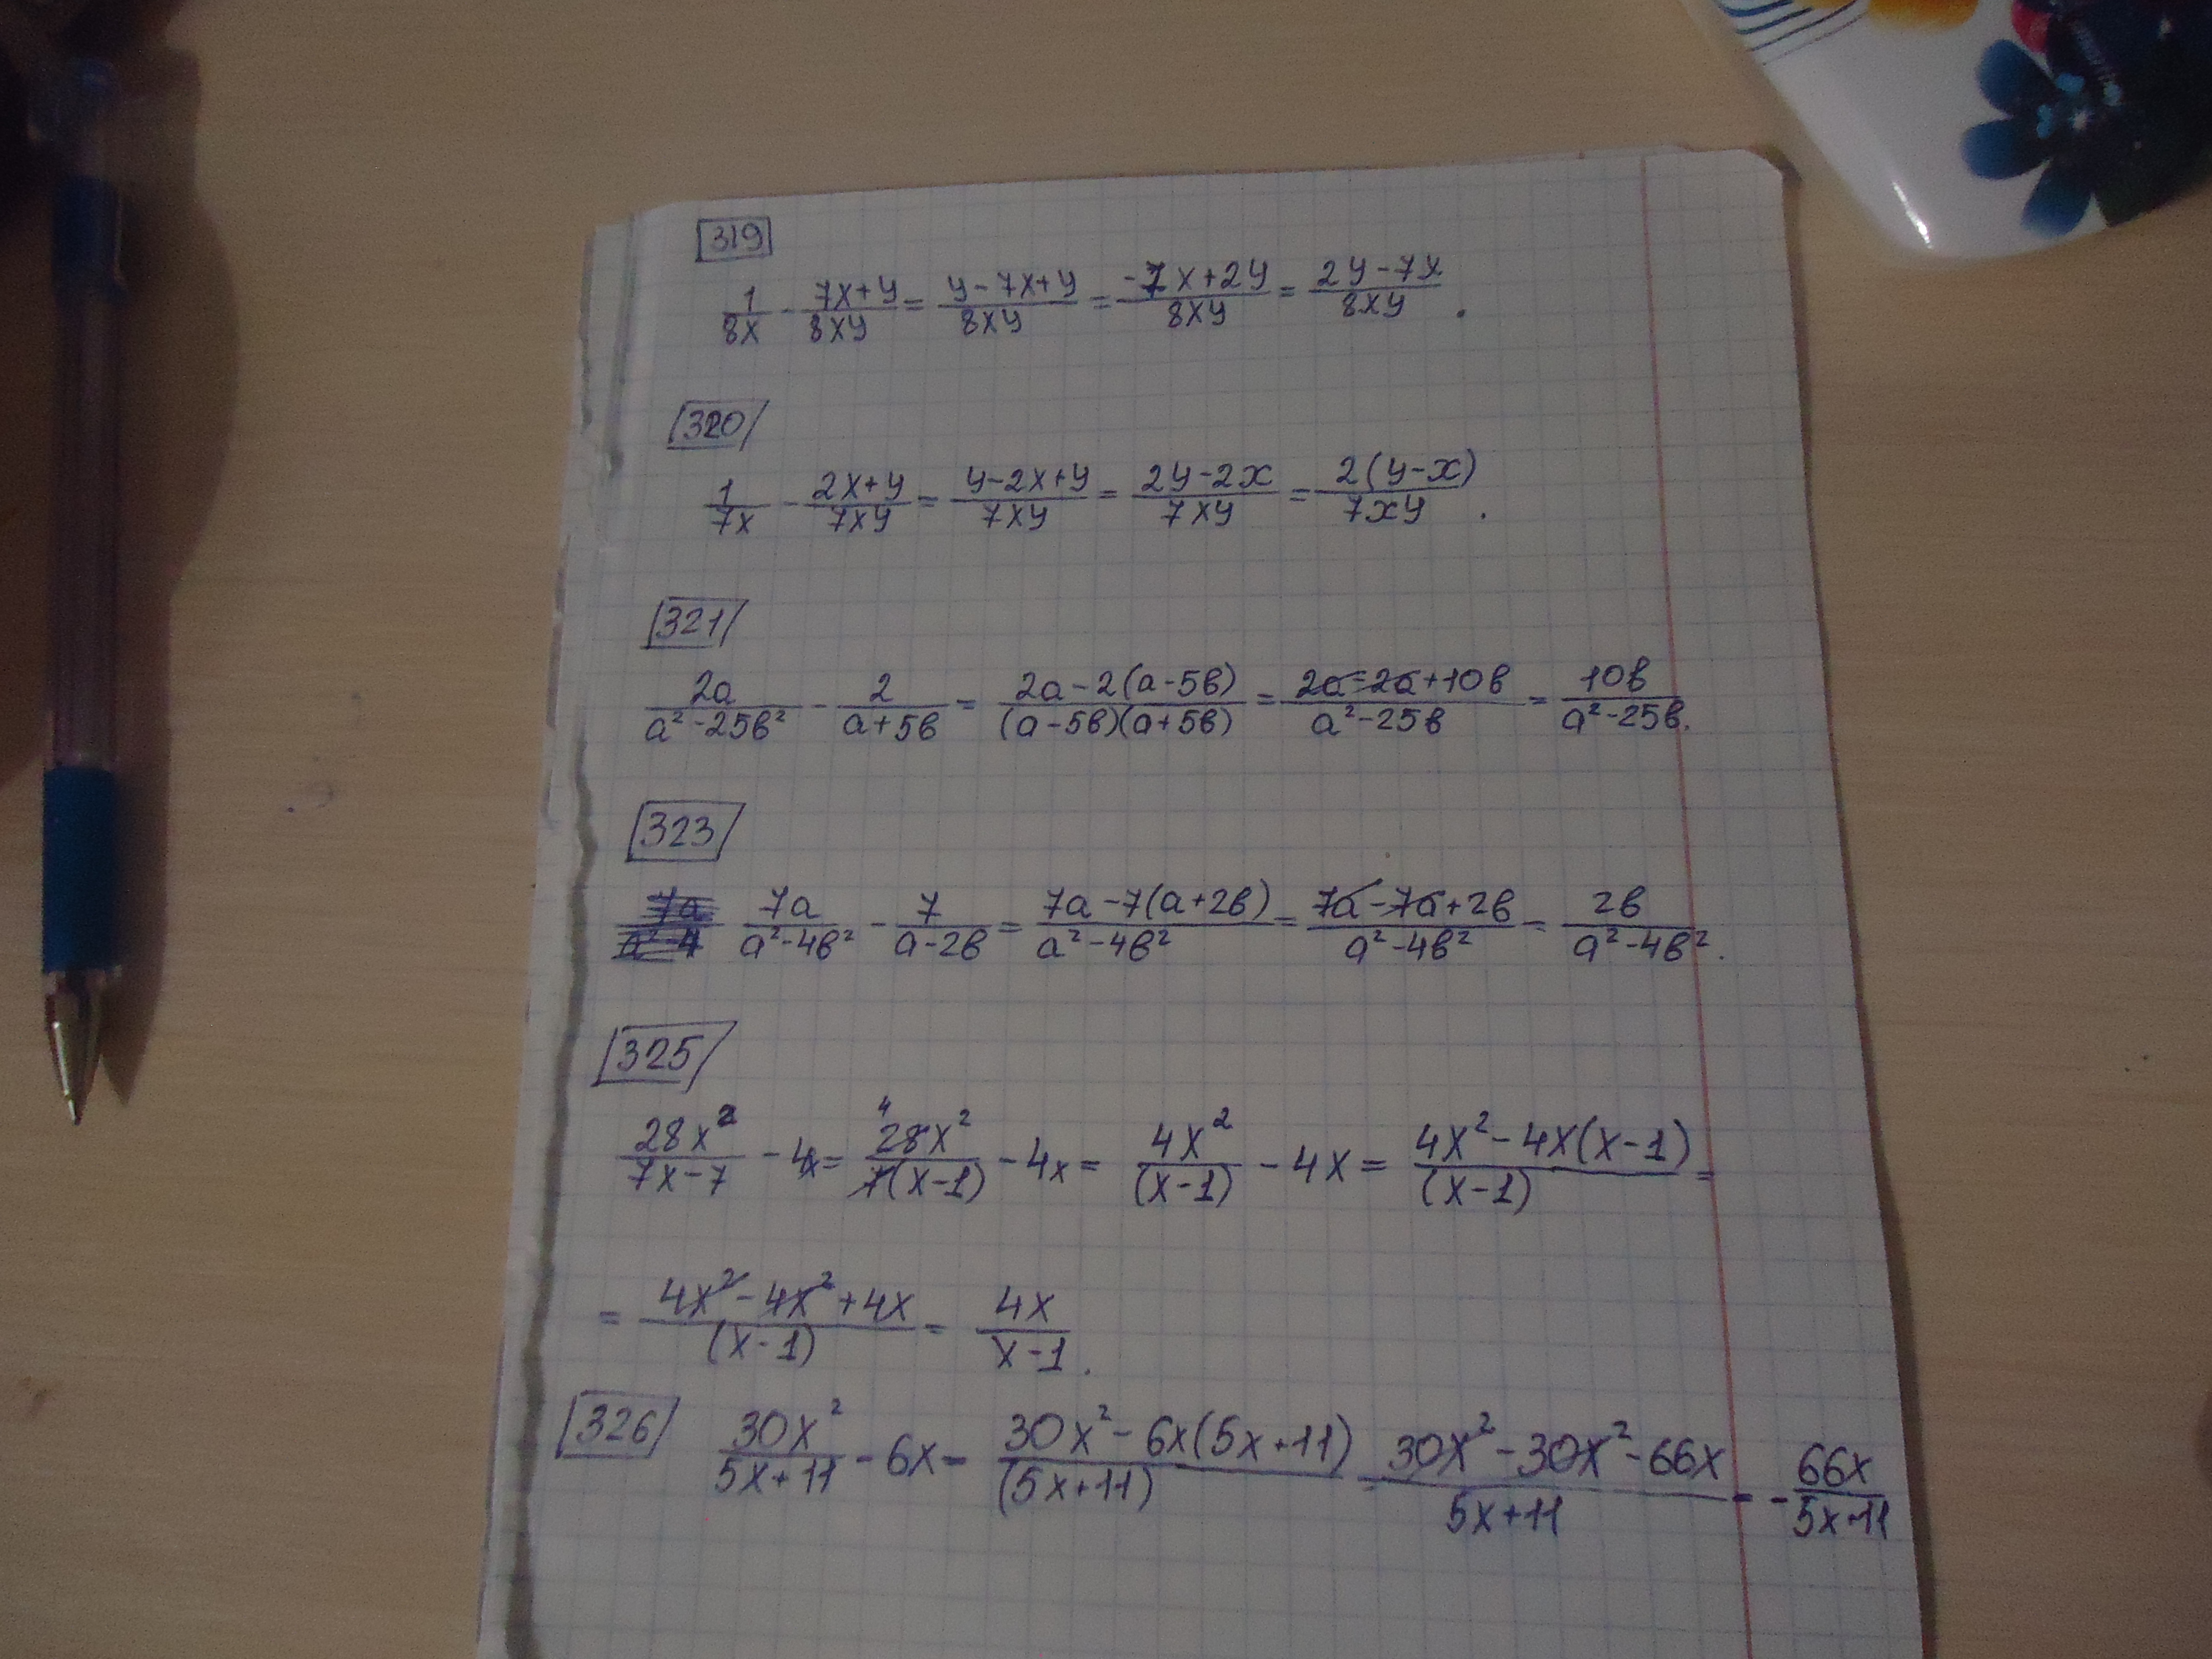 319
1/8x - 7x+y/8xy = y-7x+y/8xy = -7x+2y/8xy = 2y-7x/8xy.
320
1/7x - 2x+y/7xy = y-2x+y/7xy = 2y-2x/7xy = 2(y-x)/7xy.
321
2a/a²-25в² - 2/a+5в = 2a-2(a-5в)/(a-5в)(a+5в) = 2a-2a+10в/a²-25в = 10в/a²-25в.
323
7a/a²-4 7a/a²-4в² - 7/a-2в = 7a-7(a+2в)/a²-4в² = 7a-7a+2в/a²-4в² = 2в/a²-4в².
325
28x²/7x-7 - 4x = 4 28x²/7(x-1) - 4x = 4x²/(x-1) - 4x = 4x²-4x(x-1)/(x-1) =
= 4x²-4x²+4x/(x-1) = 4x/x-1.
326 30x²/5x+11 - 6x = 30x²-6x(5x+11)/(5x+11) = 30x²-30x²-66x/5x+11 = - 66x/5x+11